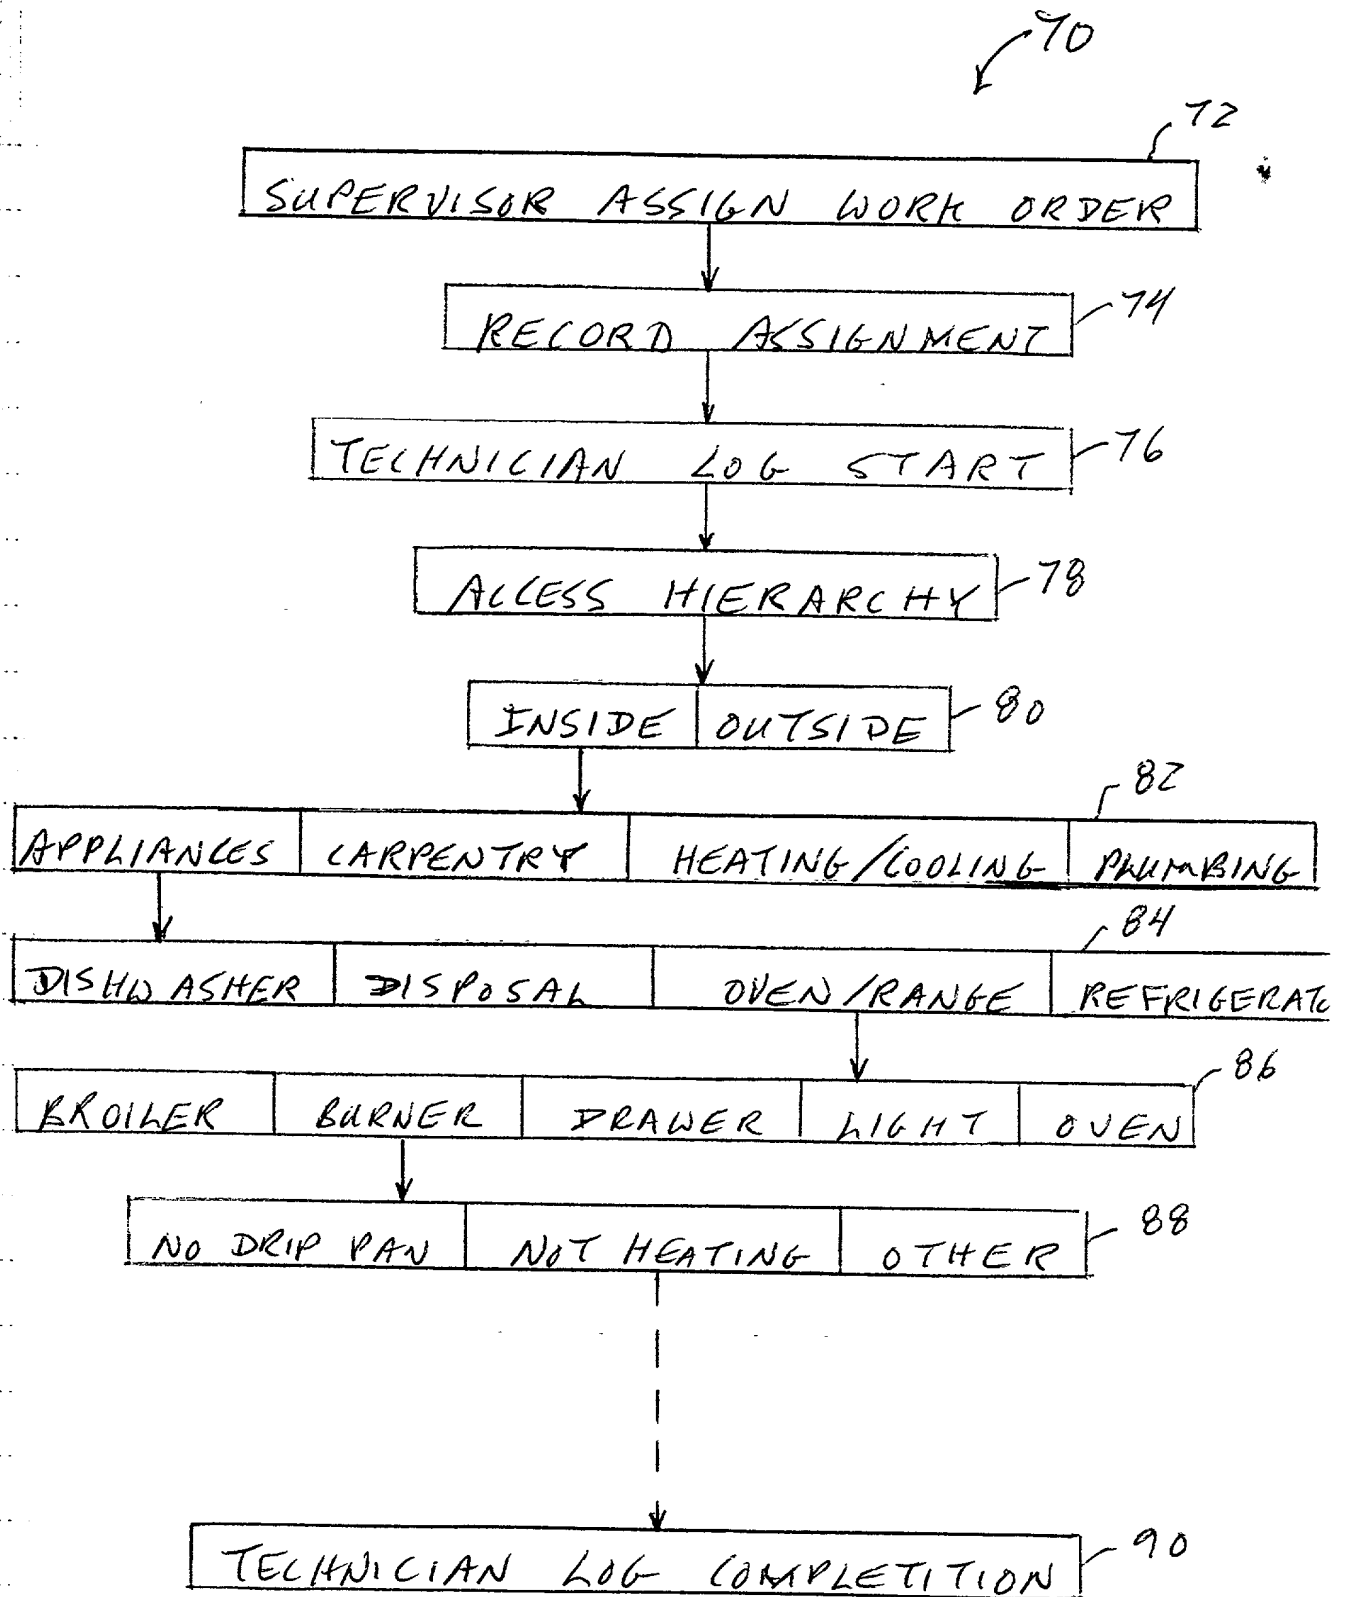 70
72
SUPERVISOR ASSIGN WORK ORDER
RECORD ASSIGNMENT 74
TECHNICIAN LOG START 76
ACCESS HIERARCHY 78
INSIDE OUTSIDE 80
82
APPLIANCES CARPENTRY HEATING/COOLING PLUMBING
84
DISHWASHER DISPOSAL OVEN/RANGE REFRIGERATO
86
BROILER BURNER DRAWER LIGHT OVEN
88
NO DRIP PAN NOT HEATING OTHER
90
TECHNICIAN LOG COMPLETITION